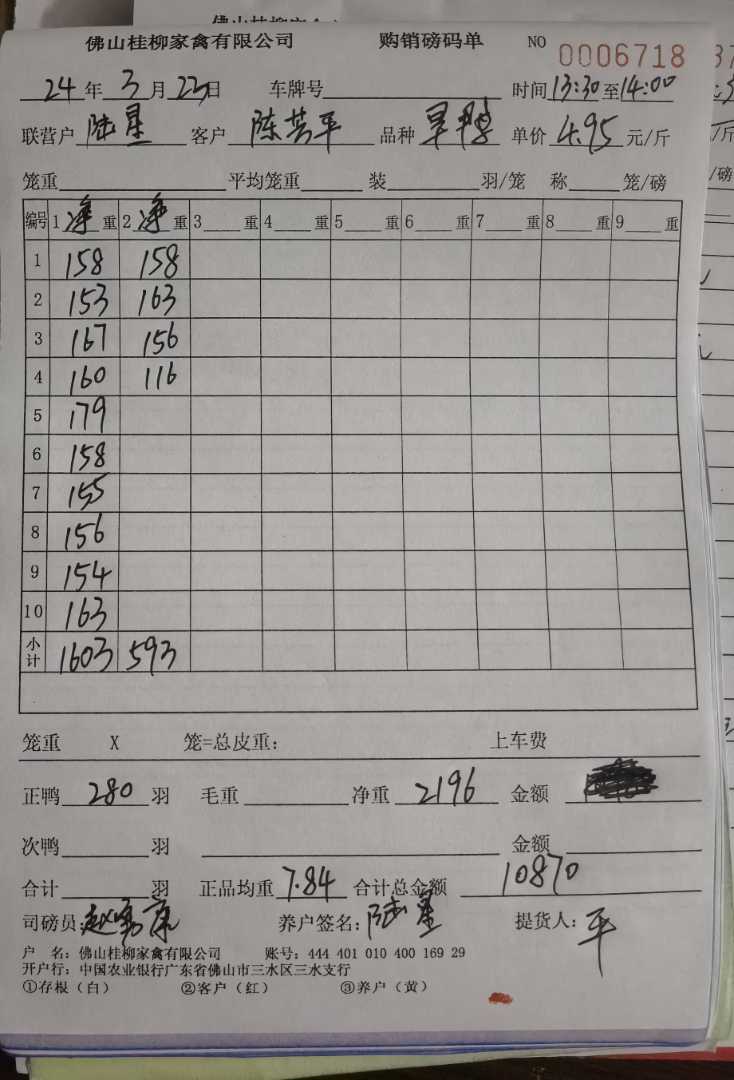 佛山桂柳家禽有限公司 购销磅码单 NO 0006718
24年3月23日 车牌号 时间13:30至14:00
联营户 陆星 客户 陈芸平 品种 旱鸭 单价 4.95 元/斤
笼重 平均笼重 装 羽/笼 称 笼/磅
编号 1净重 2净重 3 重 4 重 5 重 6 重 7 重 8 重 9 重
1 158 158
2 153 163
3 167 156
4 160 116
5 179
6 158
7 155
8 156
9 154
10 163
小计 1603 593
笼重 X 笼=总皮重: 上车费
正鸭 280 羽 毛重 净重 2196 金额
次鸭 羽 金额
合计 羽 正品均重 7.84 合计总金额 10870
司磅员: 养户签名: 陆星 提货人: 平
户 名: 佛山桂柳家禽有限公司 账号: 444 401 010 400 169 29
开户行: 中国农业银行广东省佛山市三水区三水支行
①存根(白) ②客户(红) ③养户(黄)